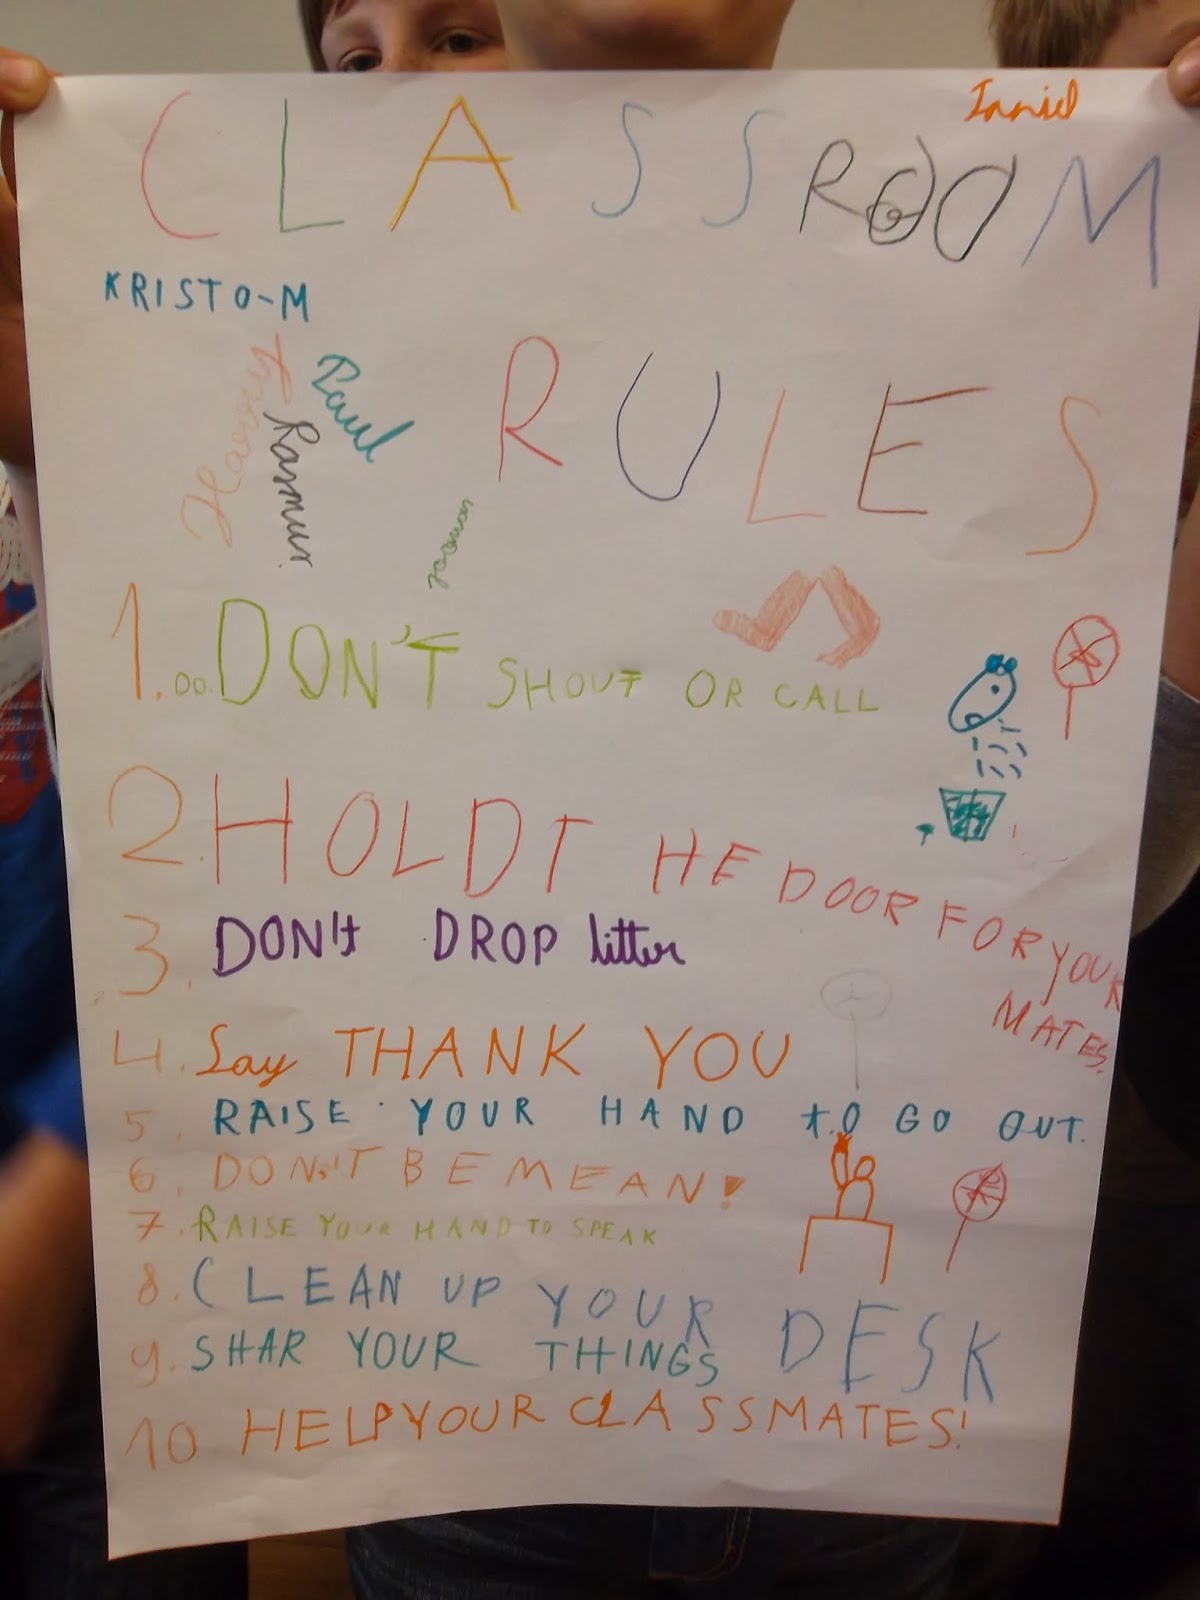 CLASSROOM
KRISTO-M
Raul
Rasmus
RULES
1. DO. DON'T SHOUT OR CALL
2. HOLDT HE DOOR FOR YOUR
MATES.
3. DON't DROP litter
4. Say THANK YOU
5. RAISE YOUR HAND tO GO OUT.
6. DON'T BE MEAN!
7. RAISE YOUR HAND TO SPEAK
8. CLEAN UP YOUR DESK
9. SHAR YOUR THINGS
10 HELP YOUR CLASSMATES!